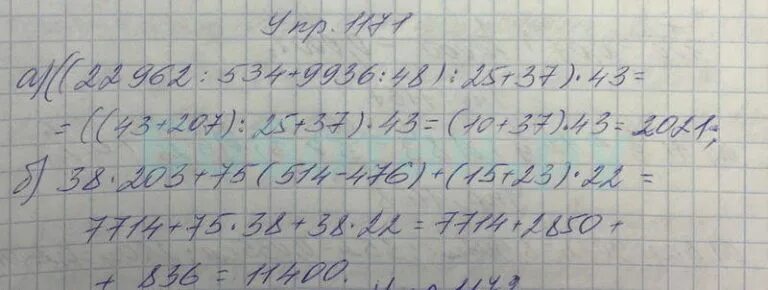 Упр. 1171
а) ((22 962 : 534 + 9936 : 48) : 25 + 37) · 43 =
= ((43 + 207) : 25 + 37) · 43 = (10 + 37) · 43 = 2021;
б) 38 · 203 + 75 (514 - 476) + (15 + 23) · 22 =
7714 + 75 · 38 + 38 · 22 = 7714 + 2850 +
+ 836 = 11400.